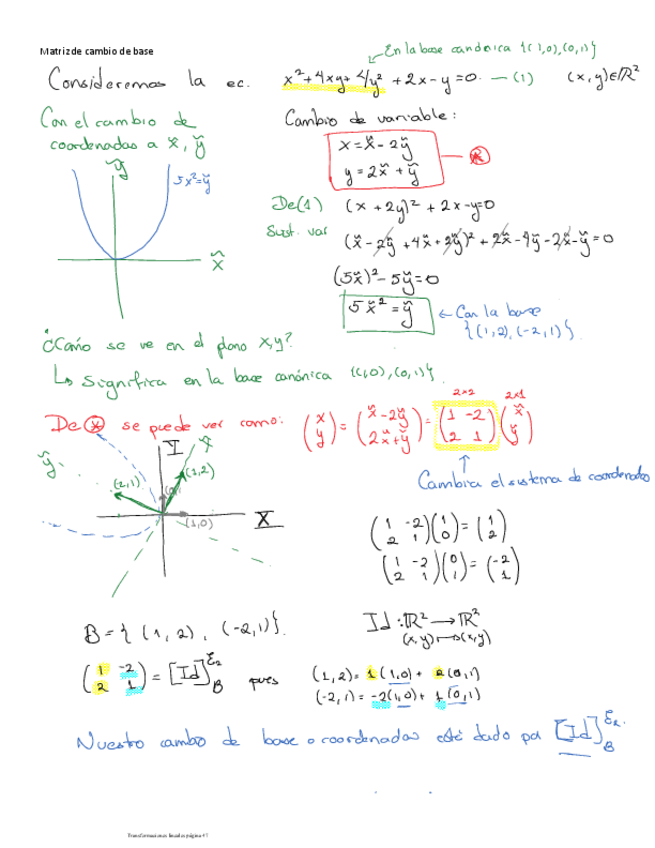 Matriz de cambio de base
En la base canónica {(1,0),(0,1)}
Consideremos la ec. x²+4xy+4y²+2x-y=0. — (1) (x,y)∈ℝ²
Con el cambio de
coordenadas a x̃, ỹ
ỹ
5x²=ỹ
x̃
Cambio de variable:
x = x̃ - 2ỹ
y = 2x̃ + ỹ
— ⊛
De (1) (x + 2y)² + 2x-y=0
Sust. var
(x̃ - 2ỹ + 4x̃ + 2ỹ)² + 2x̃ - 4ỹ - 2x̃ - ỹ = 0
(5x̃)² - 5ỹ = 0
5x̃² = ỹ
← Con la base
{(1,2), (-2,1)}.
¿Cómo se ve en el plano x,y?
↳ Significa en la base canónica {(1,0),(0,1)}.
De ⊛ se puede ver como: (x y) = (x̃-2ỹ 2x̃+ỹ) = (1 -2 2 1)(x̃ ỹ)
2×2 2×1
Cambia el sistema de coordenadas
Y x̃
ỹ
(2,1)
(1,2)
(1,0)
X
(1 -2 2 1)(1 0) = (1 2)
(1 -2 2 1)(0 1) = (-2 1)
B = { (1,2) , (-2,1)}.
Id : ℝ² → ℝ²
(x,y) ↦ (x,y)
(1 -2 2 1) = [Id]_B^{ε₂} pues
(1,2) = 1(1,0) + 2(0,1)
(-2,1) = -2(1,0) + 1(0,1)
Nuestro cambio de base o coordenadas esté dado por [Id]_B^{ε₂}.
Transformaciones lineales página 47